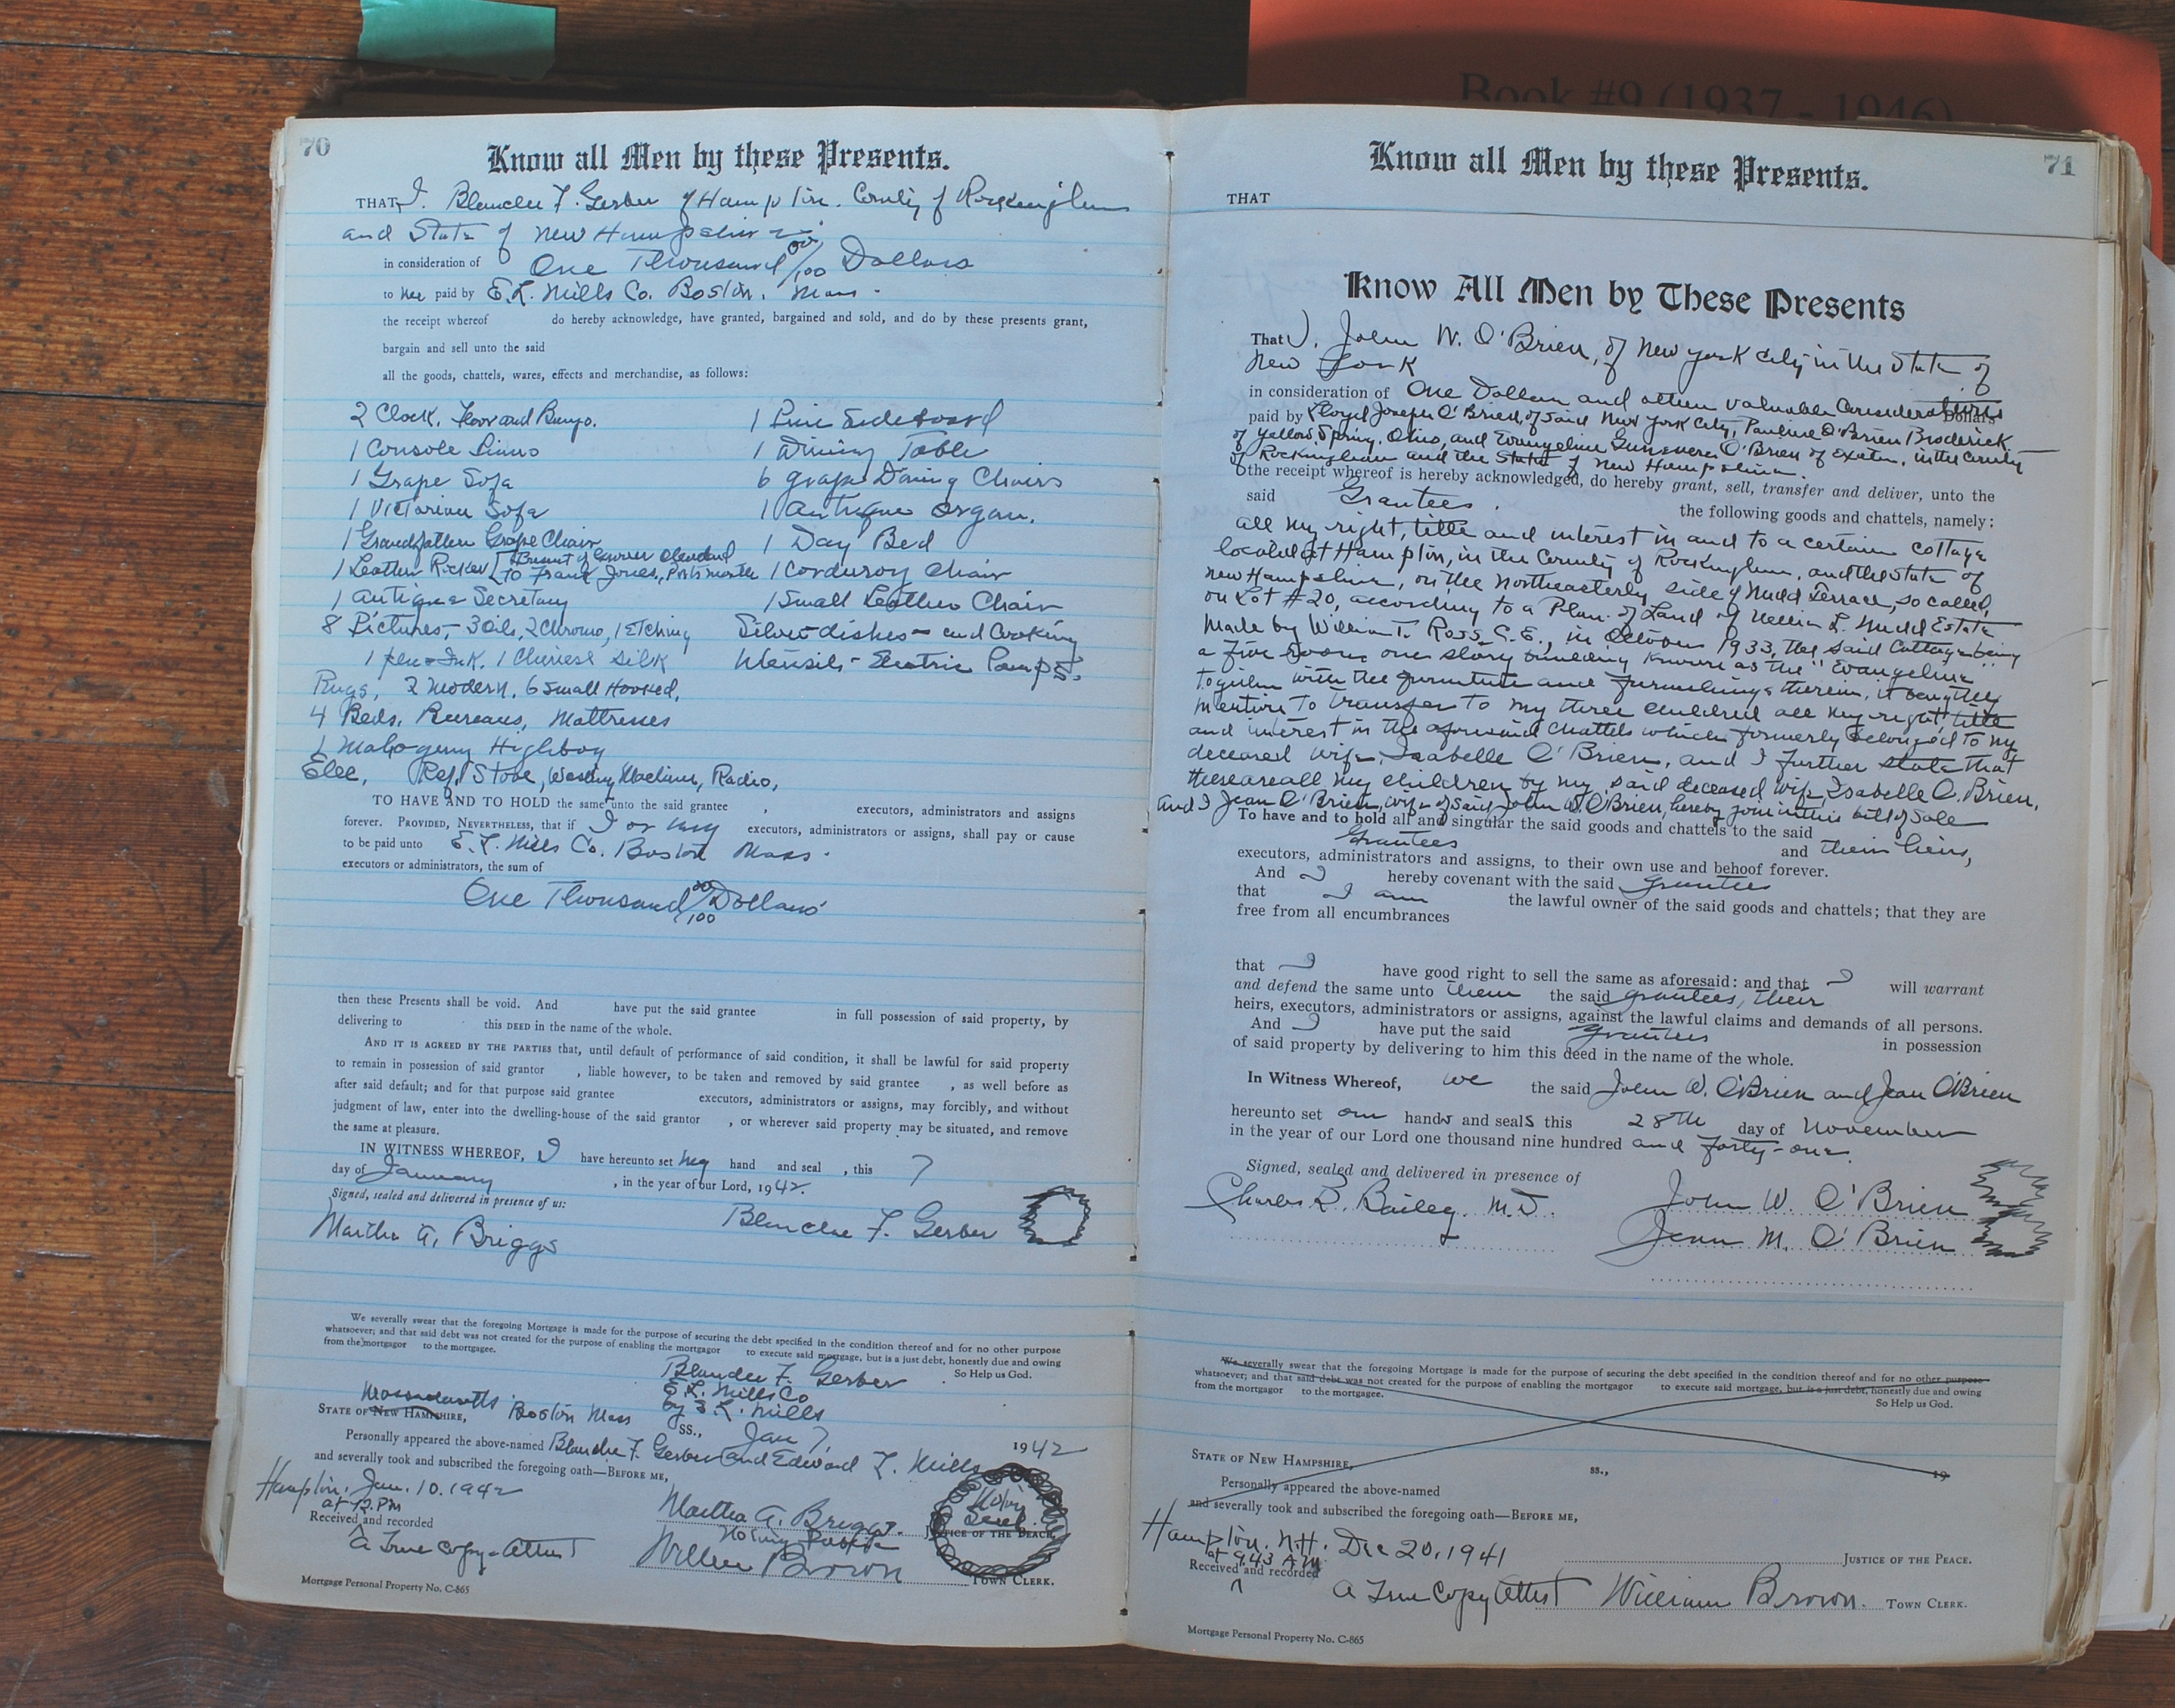 Book #9 (1937 - 1946)
70
Know all Men by these Presents.
THAT I, Blanche F. Gerber of Hampton. County of Rockingham
and State of New Hampshire
in consideration of One Thousand 00/100 Dollars
to me paid by E. L. Mills Co. Boston, Mass.
the receipt whereof do hereby acknowledge, have granted, bargained and sold, and do by these presents grant,
bargain and sell unto the said
all the goods, chattels, wares, effects and merchandise, as follows:
2 Clock, Floor and Banjo.
1 Console Piano
1 Grape Sofa
1 Victorian Sofa
1 Grandfather Grape Chair
1 Leather Rocker [Present of Grover Cleveland
To Frank Jones, Portsmouth
1 Antique Secretary
8 Pictures, - 3 Oils, 2 Chromo, 1 Etching
1 pen & Ink, 1 Chinese Silk
Rugs, 2 Modern, 6 Small Hooked,
4 Beds, Bureaus, Mattresses
1 Mahogany Highboy
Elec. Ref, Stove, Washing Machine, Radio,
1 Pine Sideboard
1 Dining Table
6 Grape Dining Chairs
1 Antique Organ.
1 Day Bed
1 Corduroy Chair
1 Small Leather Chair
Silver dishes - and Cooking
Utensils - Electric Lamps.
TO HAVE AND TO HOLD the same unto the said grantee , executors, administrators and assigns
forever. PROVIDED, NEVERTHELESS, that if I or my executors, administrators or assigns, shall pay or cause
to be paid unto E. L. Mills Co. Boston Mass.
executors or administrators, the sum of
One Thousand 00/100 Dollars
then these Presents shall be void. And have put the said grantee in full possession of said property, by
delivering to this DEED in the name of the whole.
AND IT IS AGREED BY THE PARTIES that, until default of performance of said condition, it shall be lawful for said property
to remain in possession of said grantor , liable however, to be taken and removed by said grantee , as well before as
after said default; and for that purpose said grantee executors, administrators or assigns, may forcibly, and without
judgment of law, enter into the dwelling-house of the said grantor , or wherever said property may be situated, and remove
the same at pleasure.
IN WITNESS WHEREOF, I have hereunto set my hand and seal , this 7
day of January , in the year of our Lord, 1942.
Signed, sealed and delivered in presence of us:
Martha A. Briggs
Blanche F. Gerber
We severally swear that the foregoing Mortgage is made for the purpose of securing the debt specified in the condition thereof and for no other purpose
whatsoever; and that said debt was not created for the purpose of enabling the mortgagor to execute said mortgage, but is a just debt, honestly due and owing
from the mortgagor to the mortgagee. So Help us God.
Blanche F. Gerber
E. L. Mills Co
by E. L. Mills
Massachusetts
STATE OF NEW HAMPSHIRE, Boston Mass SS., Jan 7, 1942
Personally appeared the above-named Blanche F. Gerber and Edward L. Mills
and severally took and subscribed the foregoing oath—BEFORE ME,
Hampton, Jan. 10. 1942
at 12 PM
Received and recorded
A True Copy - Attest
Martha A. Briggs.
Notary Public
JUSTICE OF THE PEACE
Seal
William Brown
TOWN CLERK.
Mortgage Personal Property No. C-865
71
Know all Men by these Presents.
THAT
Know All Men by These Presents
That I, John W. O'Brien, of New York City in the State of
New York
in consideration of One Dollar and other valuable Considerations Dollars
paid by Lloyd Joseph O'Brien, of said New York City, Pauline O'Brien Broderick
of Yellow Spring, Ohio, and Evangeline Guinevere O'Brien of Exeter, in the County
of Rockingham and the State of New Hampshire.
the receipt whereof is hereby acknowledged, do hereby grant, sell, transfer and deliver, unto the
said Grantees. the following goods and chattels, namely:
all my right, title and interest in and to a certain cottage
located at Hampton, in the County of Rockingham, and the State of
New Hampshire, on the Northeasterly side of Nudd Terrace, so called,
on Lot #20, according to a Plan of Land of L. Nudd Estate
made by William T. Ross C. E., in October 1933, the said Cottage being
a five room one story building known as the "Evangeline"
together with the furniture and furnishings therein, it being the
intention to transfer to my three children all my right title
and interest in the aforesaid chattels which formerly belonged to my
deceased wife, Isabelle O'Brien, and I further state that
these are all my children by my said deceased wife, Isabelle O'Brien.
and I Jean O'Brien, wife of said John W. O'Brien, hereby join in this bill of sale
To have and to hold all and singular the said goods and chattels to the said
Grantees and their heirs,
executors, administrators and assigns, to their own use and behoof forever.
And I hereby covenant with the said grantees
that I am the lawful owner of the said goods and chattels; that they are
free from all encumbrances
that I have good right to sell the same as aforesaid: and that I will warrant
and defend the same unto them the said grantees, their
heirs, executors, administrators or assigns, against the lawful claims and demands of all persons.
And I have put the said grantees in possession
of said property by delivering to him this deed in the name of the whole.
In Witness Whereof, we the said John W. O'Brien and Jean O'Brien
hereunto set our hands and seals this 28th day of November
in the year of our Lord one thousand nine hundred and forty-one.
Signed, sealed and delivered in presence of
Charles R. Bailey. M.D.
John W. O'Brien
Jean M. O'Brien
We severally swear that the foregoing Mortgage is made for the purpose of securing the debt specified in the condition thereof and for no other purpose
whatsoever; and that said debt was not created for the purpose of enabling the mortgagor to execute said mortgage, but is a just debt, honestly due and owing
from the mortgagor to the mortgagee. So Help us God.
STATE OF NEW HAMPSHIRE, ss., 19
Personally appeared the above-named
and severally took and subscribed the foregoing oath—BEFORE ME,
Hampton. N.H. Dec 20, 1941
at 9.43 A.M.
Received and recorded
JUSTICE OF THE PEACE.
A True Copy Attest William Brown. TOWN CLERK.
Mortgage Personal Property No. C-865